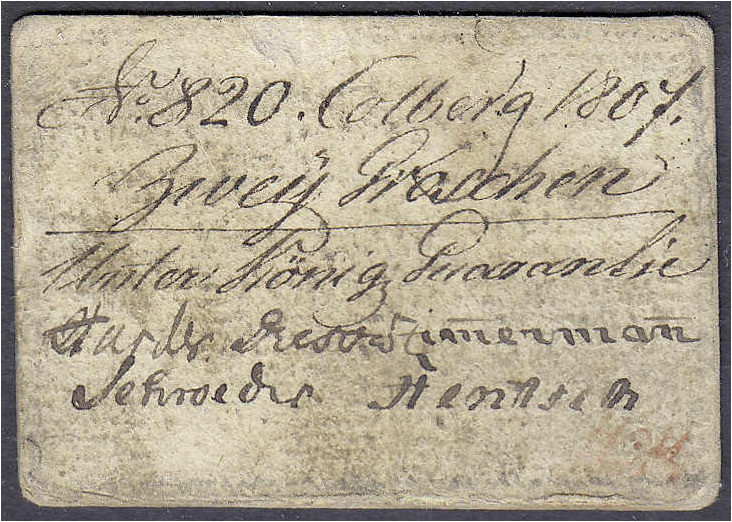 No. 820. Colberg 1807.
Zweÿ Groschen
Unter König Guarantie
Zim̅erman̅
Schroeder Hentsch